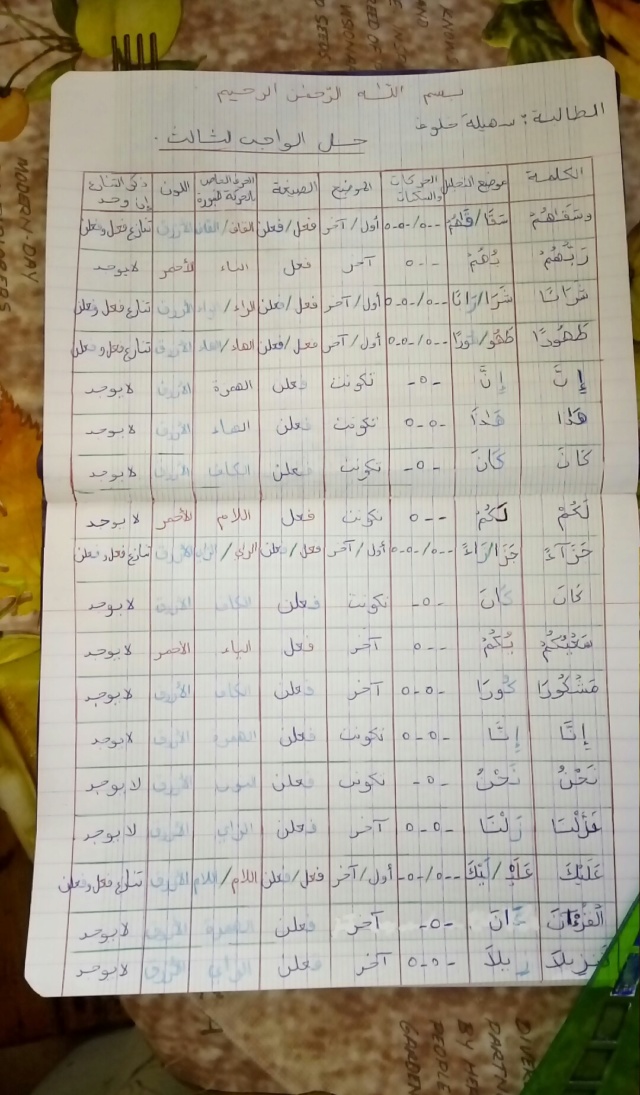 بسم الله الرحمن الرحيم
الطالبة: سهيلة حلوف
حل الواجب الثالث.
الكلمة موضع التحليل الحركات والسكنات الموضع الصيغة الحرف الخاص بالحركة اللون ذكر التنازع إن وجد
وَسَقَاهُمْ سَقَا/قَاهُمْ --ه/-ه-ه أول/آخر فعل/فعلن القاف/القاف الأزرق تنازع فعل وفعلن
رَبُّهُمْ بُهُمْ --ه آخر فعل الباء الأحمر لا يوجد
شَرَابًا شَرَا/رَابًا --ه/-ه-ه أول/آخر فعل/فعلن الراء/الراء الأزرق تنازع فعل وفعلن
طَهُورًا طَهُو/هُورًا --ه/-ه-ه أول/آخر فعل/فعلن الهاء/الهاء الأزرق تنازع فعل وفعلن
إِنَّ إِنَّ -ه- تكونت فعلن الهمزة الأزرق لا يوجد
هَذَا هَذَا -ه-ه تكونت فعلن الهاء الأزرق لا يوجد
كَانَ كَانَ -ه- تكونت فعلن الكاف الأزرق لا يوجد
لَكُمْ لَكُمْ --ه تكونت فعل اللام الأحمر لا يوجد
جَزَآءً جَزَا/زَاءً --ه/-ه-ه أول/آخر فعل/فعلن الزاي/الزاي الأزرق تنازع فعل وفعلن
كَانَ كَانَ -ه- تكونت فعلن الكاف الأزرق لا يوجد
سَعْيُكُمْ يُكُمْ --ه آخر فعل الياء الأحمر لا يوجد
مَشْكُورًا كُورًا -ه-ه آخر فعلن الكاف الأزرق لا يوجد
إِنَّا إِنَّا -ه-ه تكونت فعلن الهمزة الأزرق لا يوجد
نَحْنُ نَحْنُ -ه- تكونت فعلن النون الأزرق لا يوجد
نَزَّلْنَا زَلْنَا -ه-ه آخر فعلن الزاي الأزرق لا يوجد
عَلَيْكَ عَلَيْ/لَيْكَ --ه/-ه- أول/آخر فعل/فعلن اللام/اللام الأزرق تنازع فعل وفعلن
الْقُرْءَانَ ءَانَ -ه- آخر فعلن الهمزة الأزرق لا يوجد
تنزيلاً زيلاً -ه-ه آخر فعلن الزاي الأزرق لا يوجد
MODERN-DAY